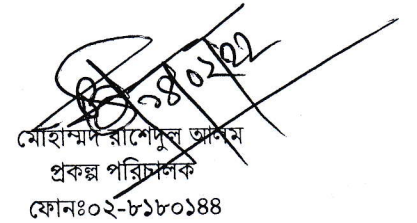 ১৪ ০২ ২২
মোহাম্মদ রাশেদুল আলম
প্রকল্প পরিচালক
ফোনঃ০২-৮১৮০১৪৪